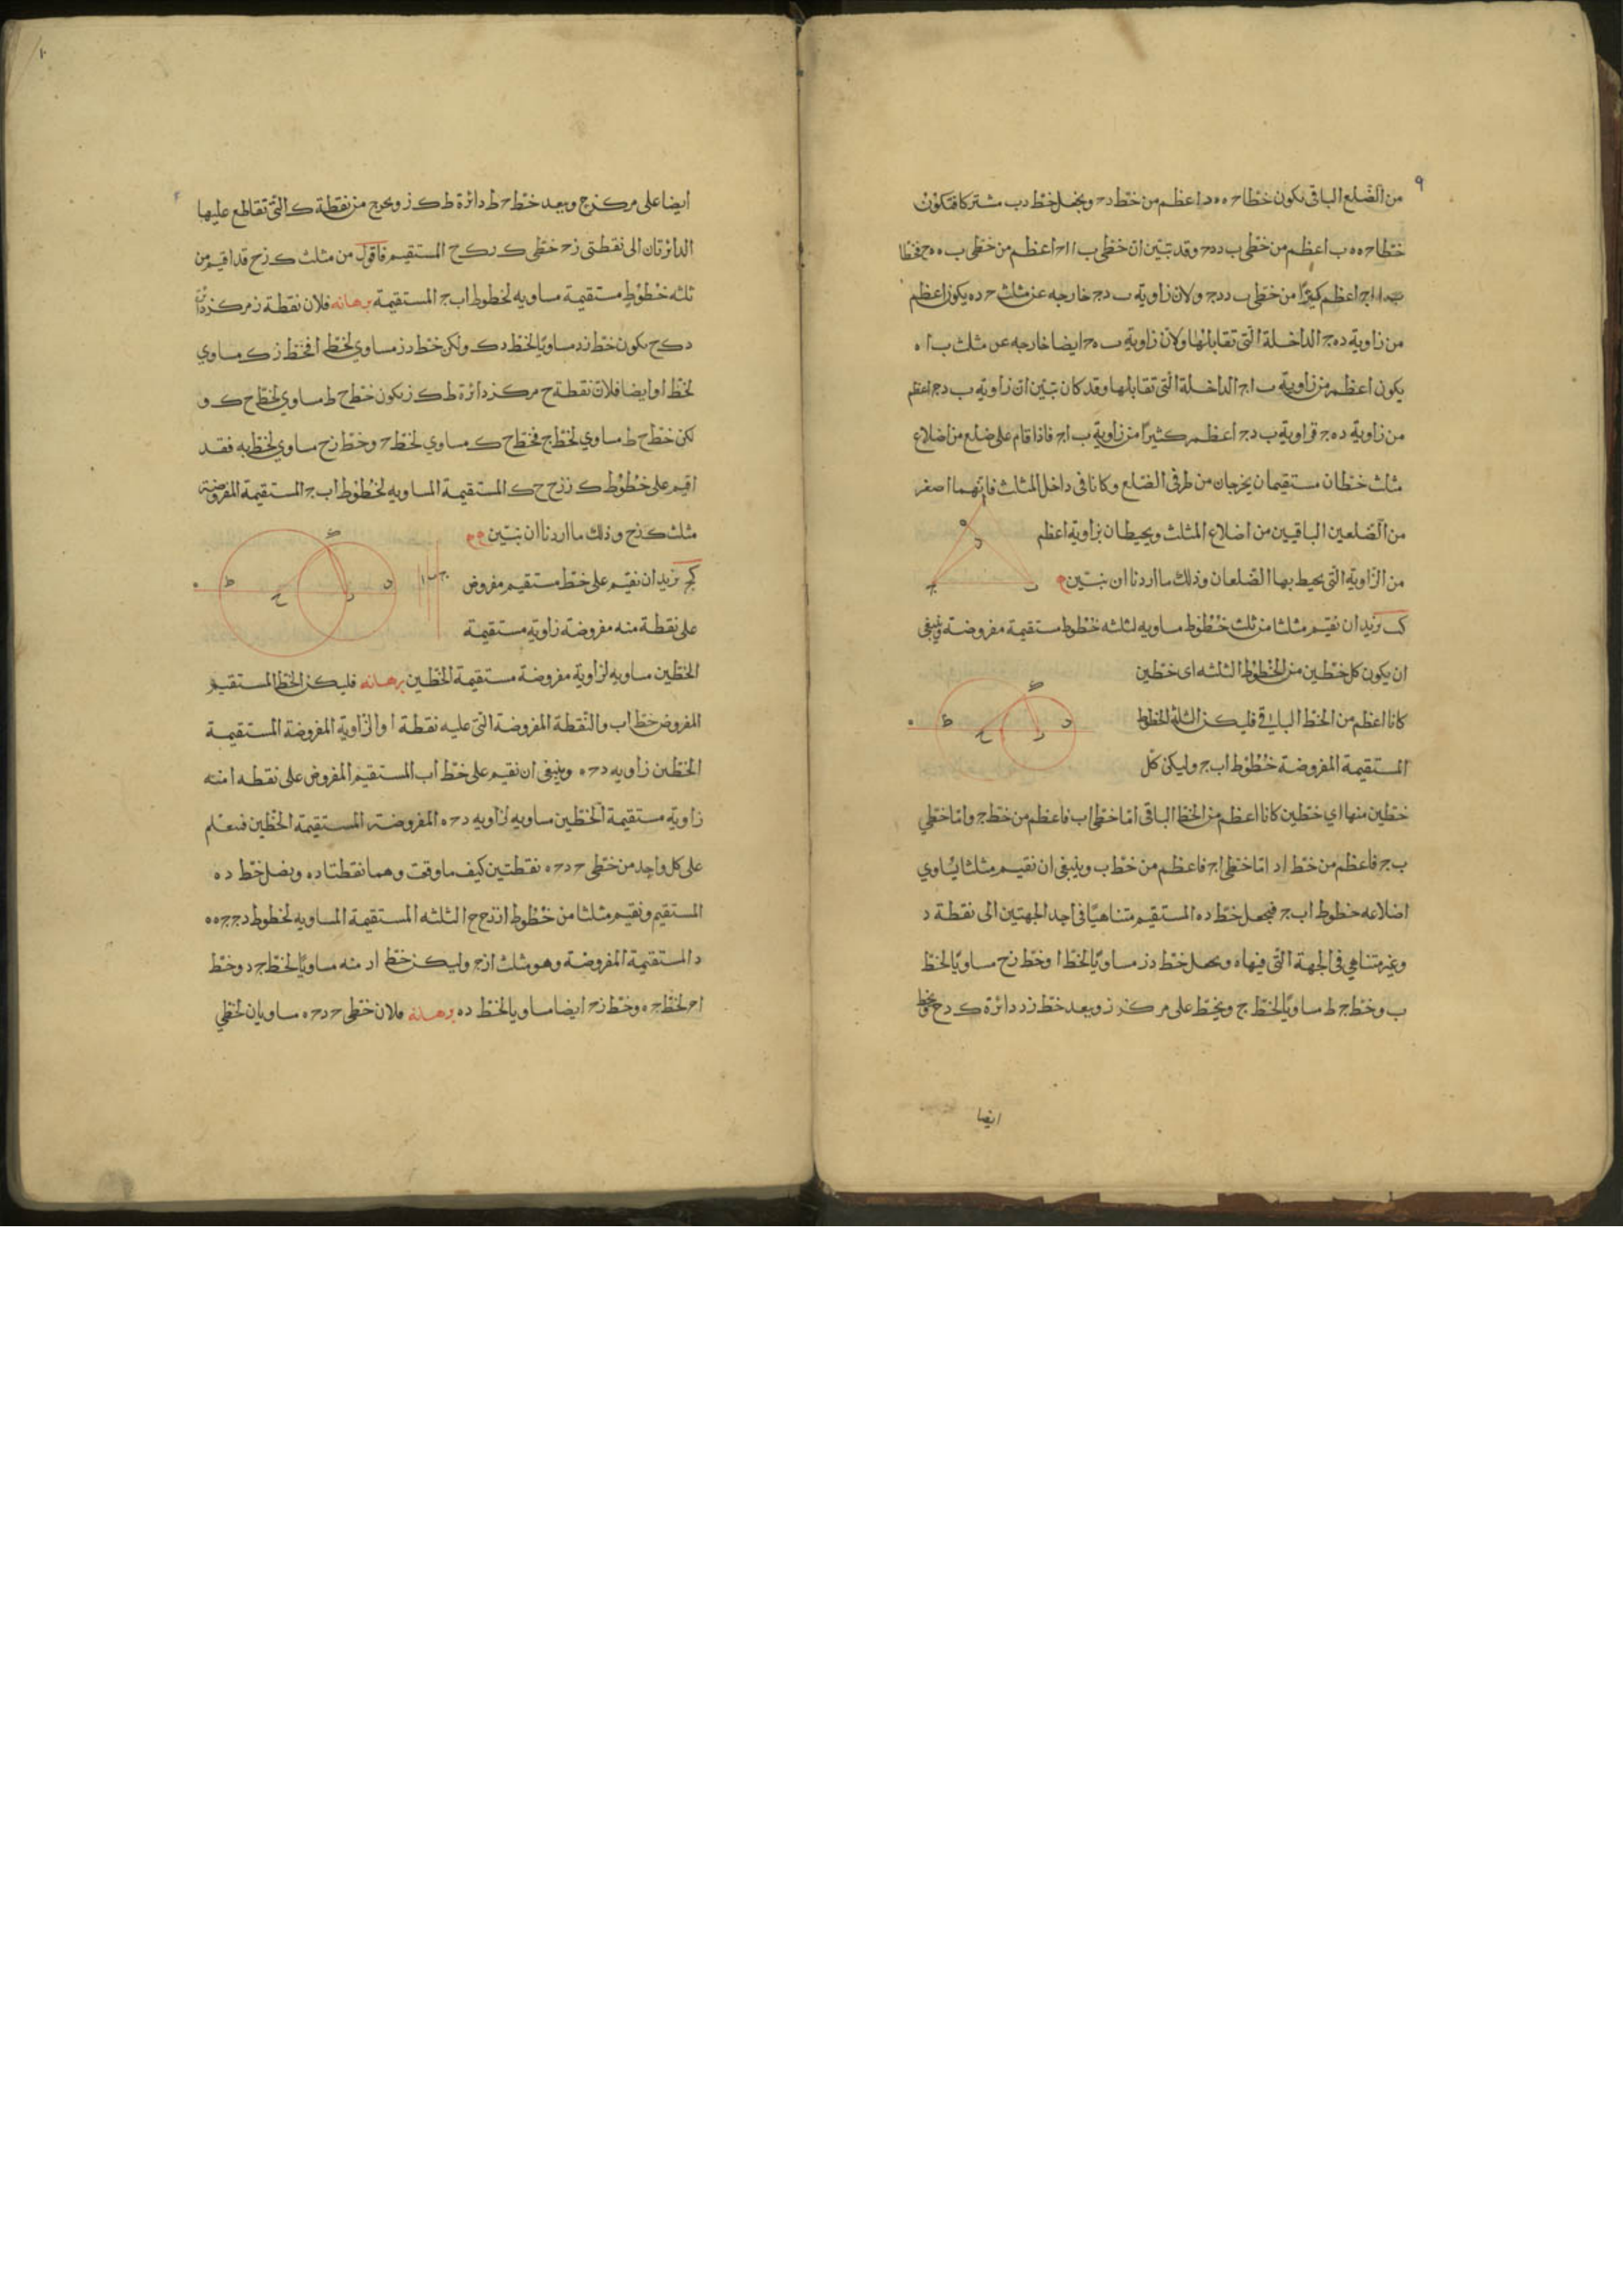 ٩
من الضّلع الباقى يكون خطا ح ه ه د اعظم من خط د ح ونجعل خط د ب مشتركا فتكون
خطا ح ه ه ب اعظم من خطى ب د د ح وقد تبيّن ان خطى ب ا ا ح اعظم من خطى ب ه ه ح فخطا
ب ا ا ج اعظم كثيرًا من خطى ب د د ج ولان زاوية ب د ج خارجه عن مثلث ح د ه يكون اعظم
من زاوية د ه ج الداخلة الّتى تقابلها ولان زاوية ب ه ح ايضا خارجه عن مثلث ب ا ه
يكون اعظم من زاوية ب ا ج الداخلة الّتى تقابلها وقد كان تبيّن ان زاوية ب د ج اعظم
من زاوية د ه ج فزاوية ب د ج اعظم كثيرًا من زاوية ب ا ج فاذا قام على ضلع من اضلاع
مثلث خطان مستقيمان يخرجان من طرفى الضلع وكانا فى داخل المثلث فانهما اصغر
من الضلعين الباقيين من اضلاع المثلث ويحيطان بزاوية اعظم
من الزّاوية الّتى يحيط بها الضلعان وذلك ما اردنا ان نبيّن
كب نريد ان نقيم مثلثا من ثلث خطوط مساويه لثلثه خطوط مستقيمة مفروضة وينبغى
ان يكون كل خطين من الخطوط الثلثه اى خطين
كانا اعظم من الخط الباقى فليكن الثلثة الخطوط
المستقيمة المفروضة خطوط ا ب ج وليكن كل
خطين منها اى خطين كانا اعظم من الخط الباقى امّا خطى ا ب فاعظم من خط ج وامّا خطى
ب ج فاعظم من خط ا و امّا خطى ا ج فاعظم من خط ب وينبغى ان نقيم مثلثا يساوي
اضلاعه خطوط ا ب ج فنجعل خط د ه المستقيم متناهيًا فى احد الجهتين الى نقطة د
وغير متناهي فى الجهة الّتى فيها ه ونجعل خط د ز مساويًا لخط ا وخط ز ح مساويًا لخط
ب وخط ح ط مساويًا لخط ج ونخط على مركز ز وببعد خط ز د دائرة ك د ح ونخط
ايضا
١٠
ايضا على مركز ح وببعد خط ح ط دائرة ط ك ز ونخرج من نقطة ك الّتى تقاطع عليها
الدائرتان الى نقطتى ز ح خطى ك ز ك ح المستقيم فاقول من مثلث ك ز ح قد اقيم من
ثلثه خطوط مستقيمة مساويه لخطوط ا ب ج المستقيمة برهانه فلان نقطة ز مركز دائرة
د ك ح يكون خط ز د مساويًا لخط د ك ولكن خط د ز مساوي لخط ا فخط ز ك مساوي
لخط ا وايضا فلان نقطة ح مركز دائرة ط ك ز يكون خط ح ط مساوي لخط ح ك و
لكن خط ح ط مساوي لخط ج فخط ح ك مساوي لخط ج وخط ز ح مساوي لخط ب فقد
اقيم على خطوط ك ز ز ح ح ك المستقيمة المساويه لخطوط ا ب ج المستقيمة المفروضة
مثلث ك ز ح وذلك ما اردنا ان نبيّن
كج نريد ان نقيم على خط مستقيم مفروض
على نقطة منه مفروضة زاوية مستقيمة
الخطين مساويه لزاوية مفروضة مستقيمة الخطين برهانه فليكن الخط المستقيم
المفروض خط ا ب والنقطة المفروضة الّتى عليه نقطة ا والزاوية المفروضة المستقيمة
الخطين زاويه د ح ه وينبغى ان نقيم على خط ا ب المستقيم المفروض على نقطه ا منه
زاوية مستقيمة الخطين مساويه لزاويه د ح ه المفروضة المستقيمة الخطين فنعلم
على كل واحد من خطى ح د ح ه نقطتين كيف ما وقعت وهما نقطتا د ه ونصل خط د ه
المستقيم ونقيم مثلثا من خطوط ا ز ز ح ح ا الثلثه المستقيمة المساويه لخطوط د ج ج ه ه
د المستقيمة المفروضة وهو مثلث ا ز ح وليكن خط ا ز منه مساويًا لخط ج د وخط
ا ح لخط ج ه وخط ز ح ايضا مساويا لخط د ه برهانه فلان خطى ح د ح ه مساويان لخطي